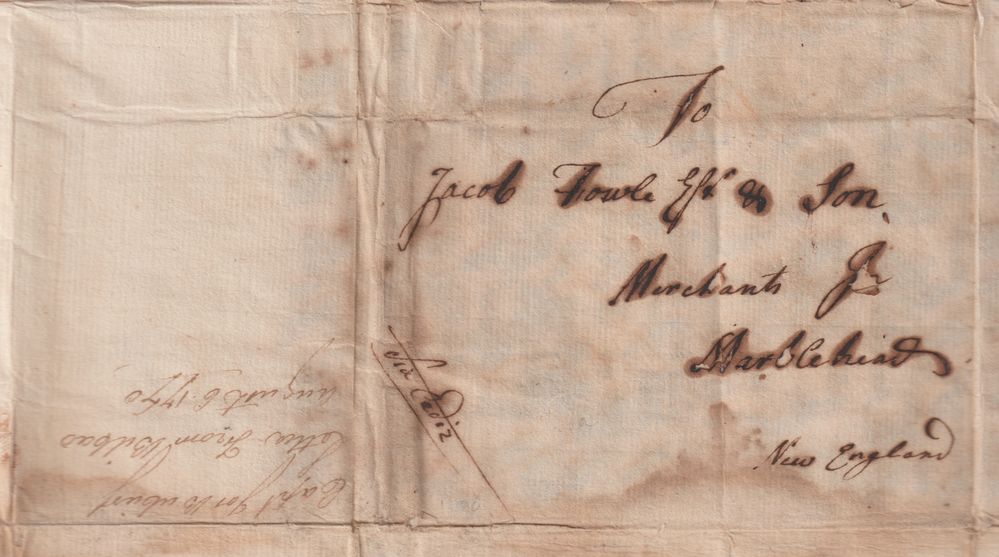 To
Jacob Fowle Esqr & Son
Merchants In
Marblehead
New England
Via Cadiz
Capt
Letter From Bilbao
August 6 1770